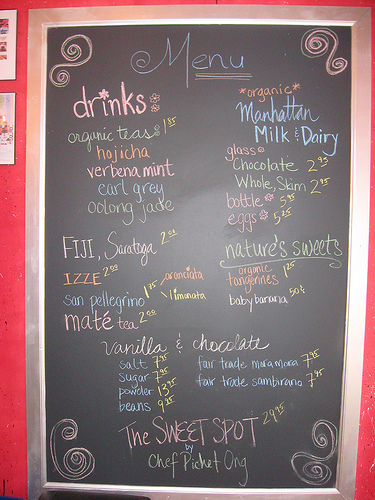 Menu
drinks
organic teas 1.85
hojicha
verbena mint
earl grey
oolong jade
FIJI, Saratoga 2.00
IZZE 2.00
san pellegrino 1.75 aranciata
limonata
maté tea 2.00
*organic*
Manhattan
Milk & Dairy
glass
Chocolate 2.95
Whole, Skim 2.95
bottle 5.95
eggs 5.25
nature's sweets
organic
tangerines 1.25
baby banana 50¢
vanilla & chocolate
salt 7.95
sugar 7.95
powder 13.95
beans 9.25
fair trade moramora 7.95
fair trade sambirano 7.95
The SWEET SPOT 29.95
by
Chef Pichet Ong